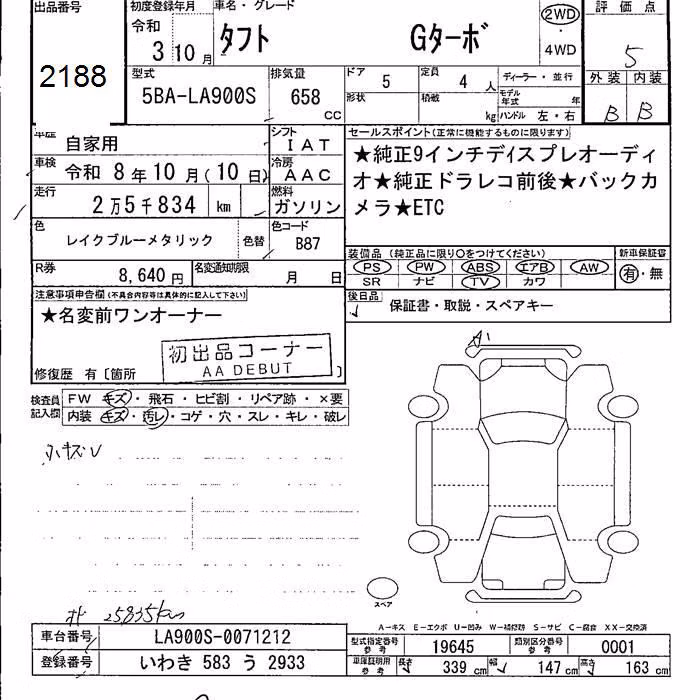 出品番号
2188
初度登録年月
令和
3 10月
車名・グレード
タフト Gターボ
2WD
・
4WD
評価点
5
外装 内装
B B
型式
5BA-LA900S
排気量
658
CC
ドア
5
定員
4 人
ディーラー・並行
形状
積載
kg
モデル
年式 年
ハンドル 左・右
車歴
自家用
シフト
IAT
車検
令和 8年10月(10日)
冷房
AAC
走行
2万5千834 km
燃料
ガソリン
色
レイクブルーメタリック
色替
色コード
B87
R券
8,640円
名変通知期限
月 日
セールスポイント(正常に機能するものに限ります)
★純正9インチディスプレオーディ
オ★純正ドラレコ前後★バックカ
メラ★ETC
装備品(純正品に限り○をつけてください)
PS PW ABS エアB AW
SR ナビ TV カワ
新車保証書
有・無
後日品
保証書・取説・スペアキー
注意事項申告欄(不具合内容等は具体的に記入して下さい)
★名変前ワンオーナー
初出品コーナー
AA DEBUT
修復歴 有〔箇所 〕
検査員
記入欄
FW キズ・飛石・ヒビ割・リペア跡・×要
内装 キズ・汚レ・コゲ・穴・スレ・キレ・破レ
小キズU
A1
スペア
25835km
A-キス E-エクボ U-凹み W-補修跡 S-サビ C-腐食 XX-交換済
車台番号
LA900S-0071212
登録番号
いわき 583 う 2933
型式指定番号
参考
19645
類別区分番号
参考
0001
車庫証明用
参考
長さ 339 cm
幅 147 cm
高さ 163 cm